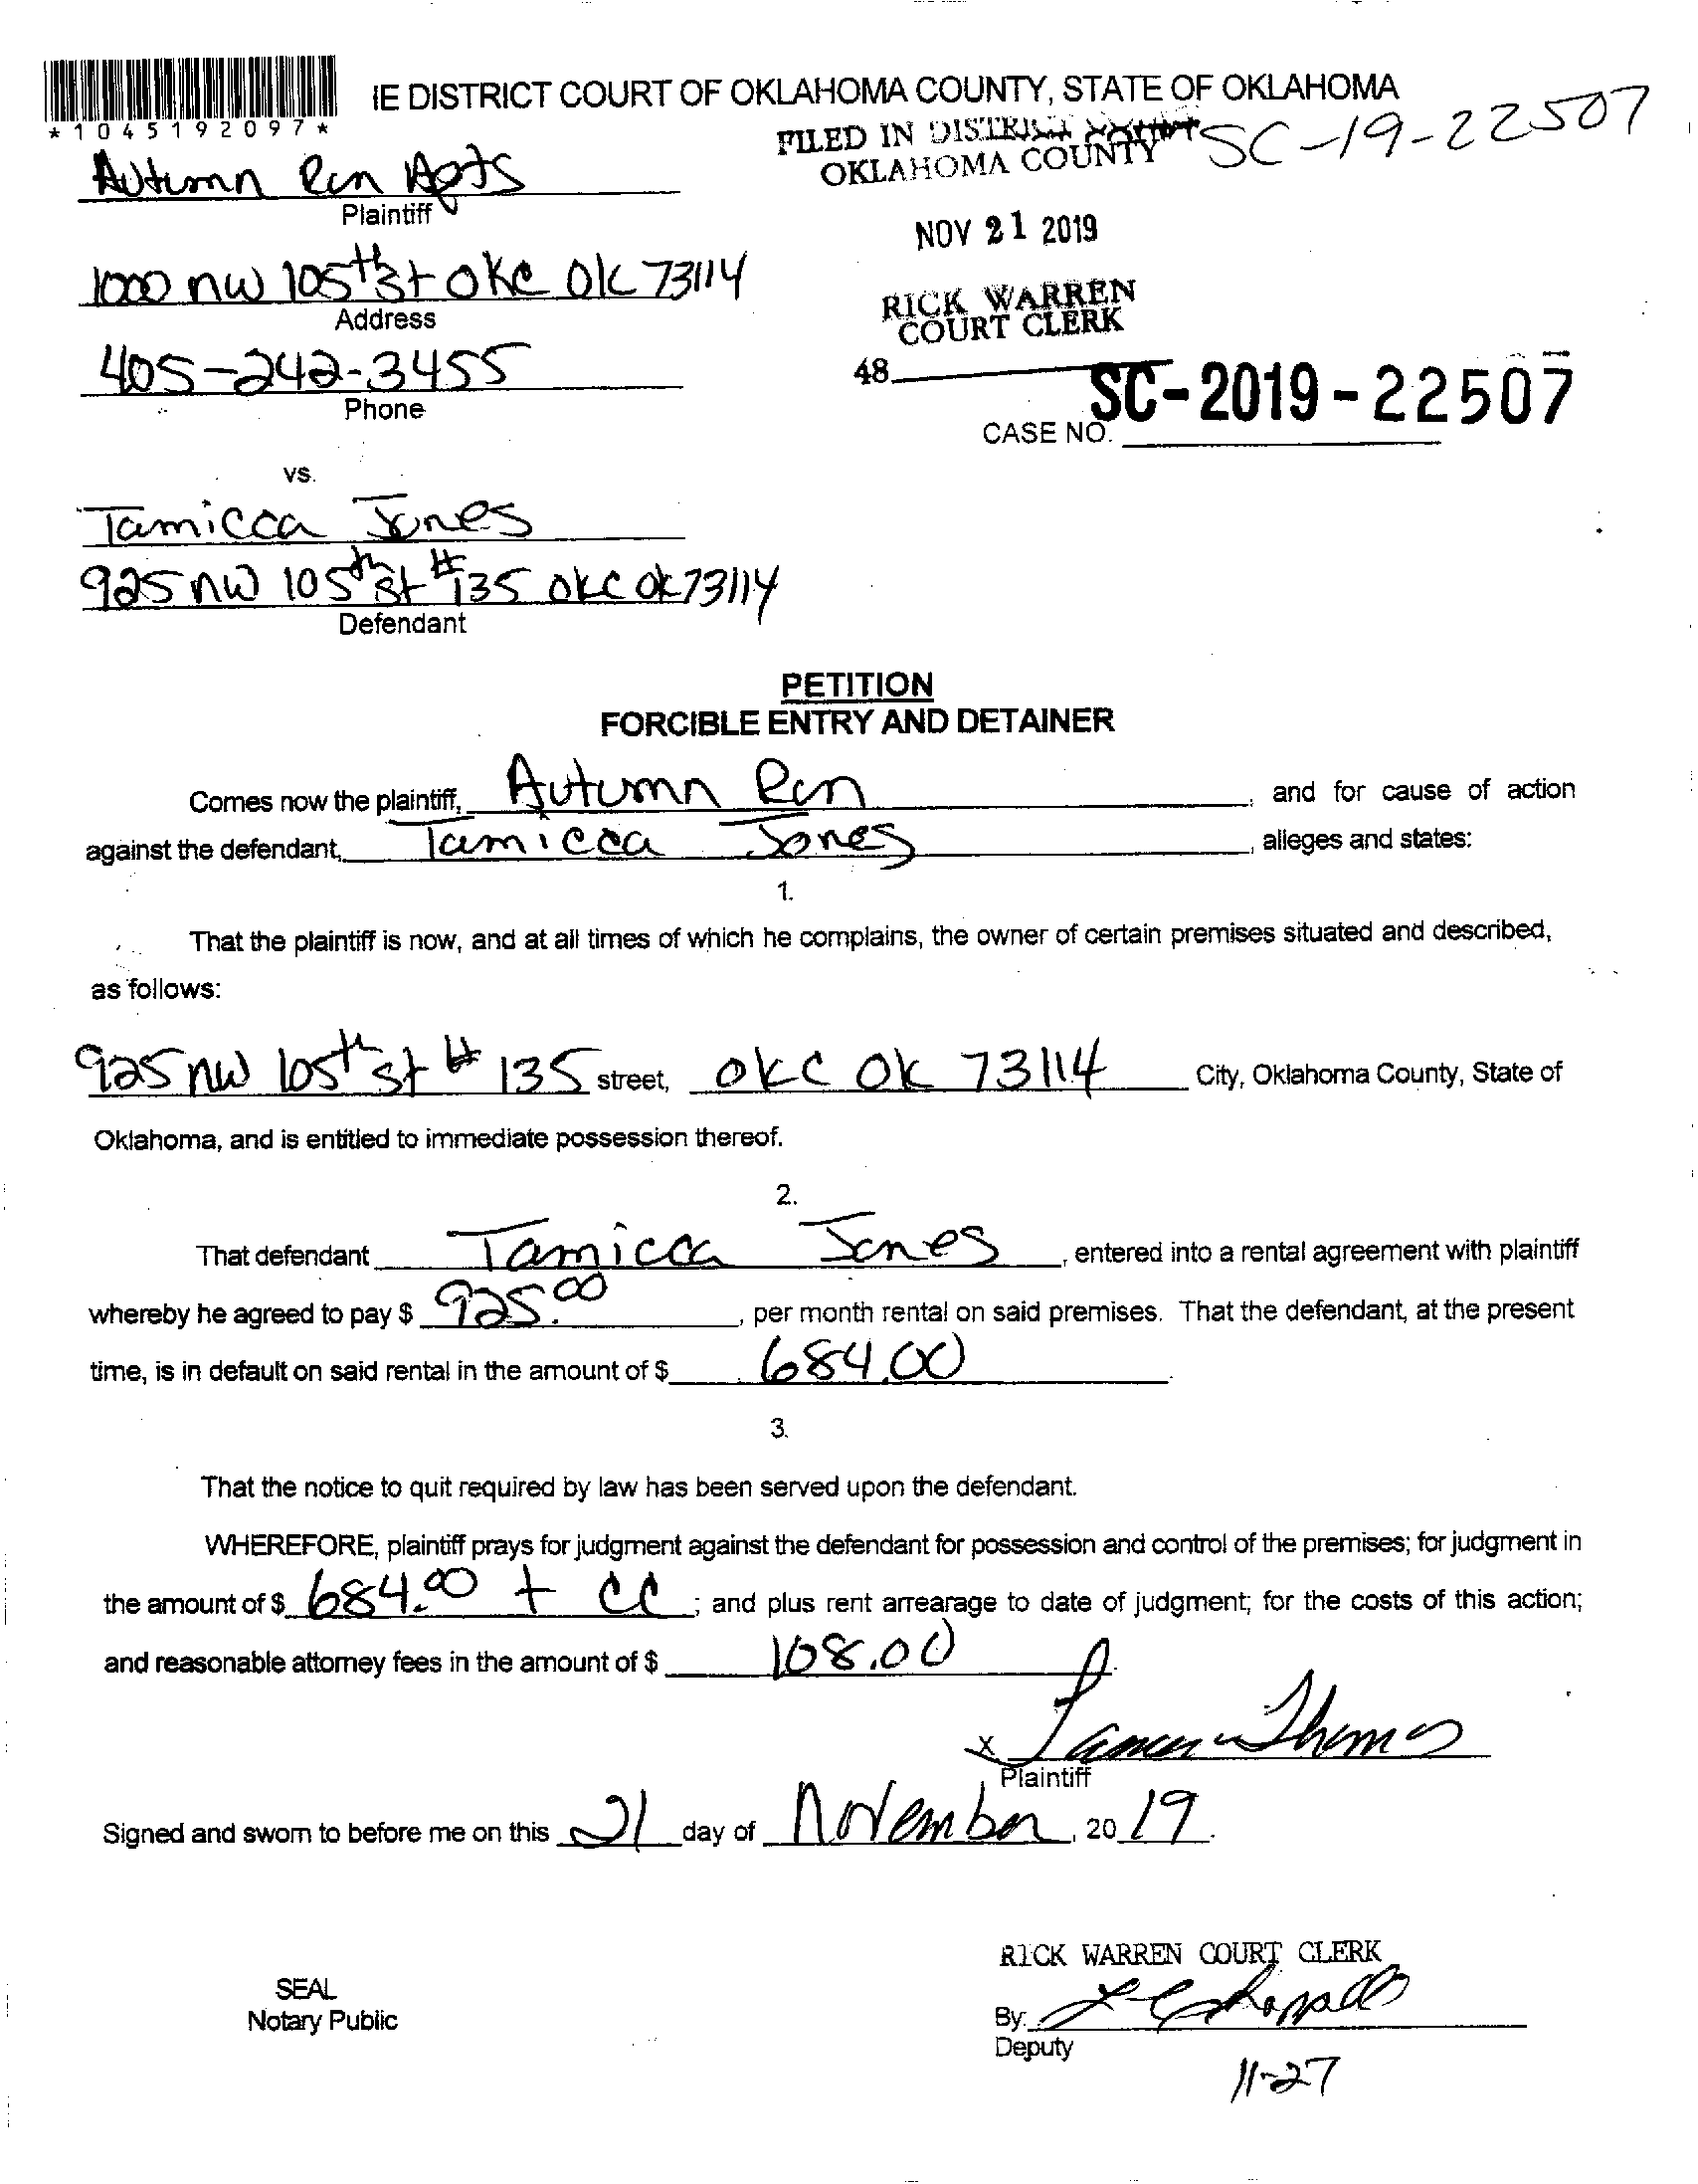 IE DISTRICT COURT OF OKLAHOMA COUNTY, STATE OF OKLAHOMA
*1045192097*
FILED IN DISTRICT COURT
OKLAHOMA COUNTY
SC-19-22507
Autumn Run Apts
Plaintiff
NOV 21 2019
1000 NW 105th St OKC OK 73114
Address
RICK WARREN
COURT CLERK
405-242-3455
Phone
48
SC-2019-22507
CASE NO.
vs.
Tamicca Jones
925 NW 105th St #135 OKC OK 73114
Defendant
PETITION
FORCIBLE ENTRY AND DETAINER
Comes now the plaintiff, Autumn Run, and for cause of action
against the defendant, Tamicca Jones, alleges and states:
1.
That the plaintiff is now, and at all times of which he complains, the owner of certain premises situated and described,
as follows:
925 NW 105th St # 135 street, OKC OK 73114 City, Oklahoma County, State of
Oklahoma, and is entitled to immediate possession thereof.
2.
That defendant Tamicca Jones, entered into a rental agreement with plaintiff
whereby he agreed to pay $ 925.00, per month rental on said premises. That the defendant, at the present
time, is in default on said rental in the amount of $ 684.00
3.
That the notice to quit required by law has been served upon the defendant.
WHEREFORE, plaintiff prays for judgment against the defendant for possession and control of the premises; for judgment in
the amount of $ 684.00 + CC; and plus rent arrearage to date of judgment; for the costs of this action;
and reasonable attorney fees in the amount of $ 108.00
X
Plaintiff
Signed and sworn to before me on this 21 day of November, 2019.
RICK WARREN COURT CLERK
SEAL
Notary Public
By:
Deputy
11-27